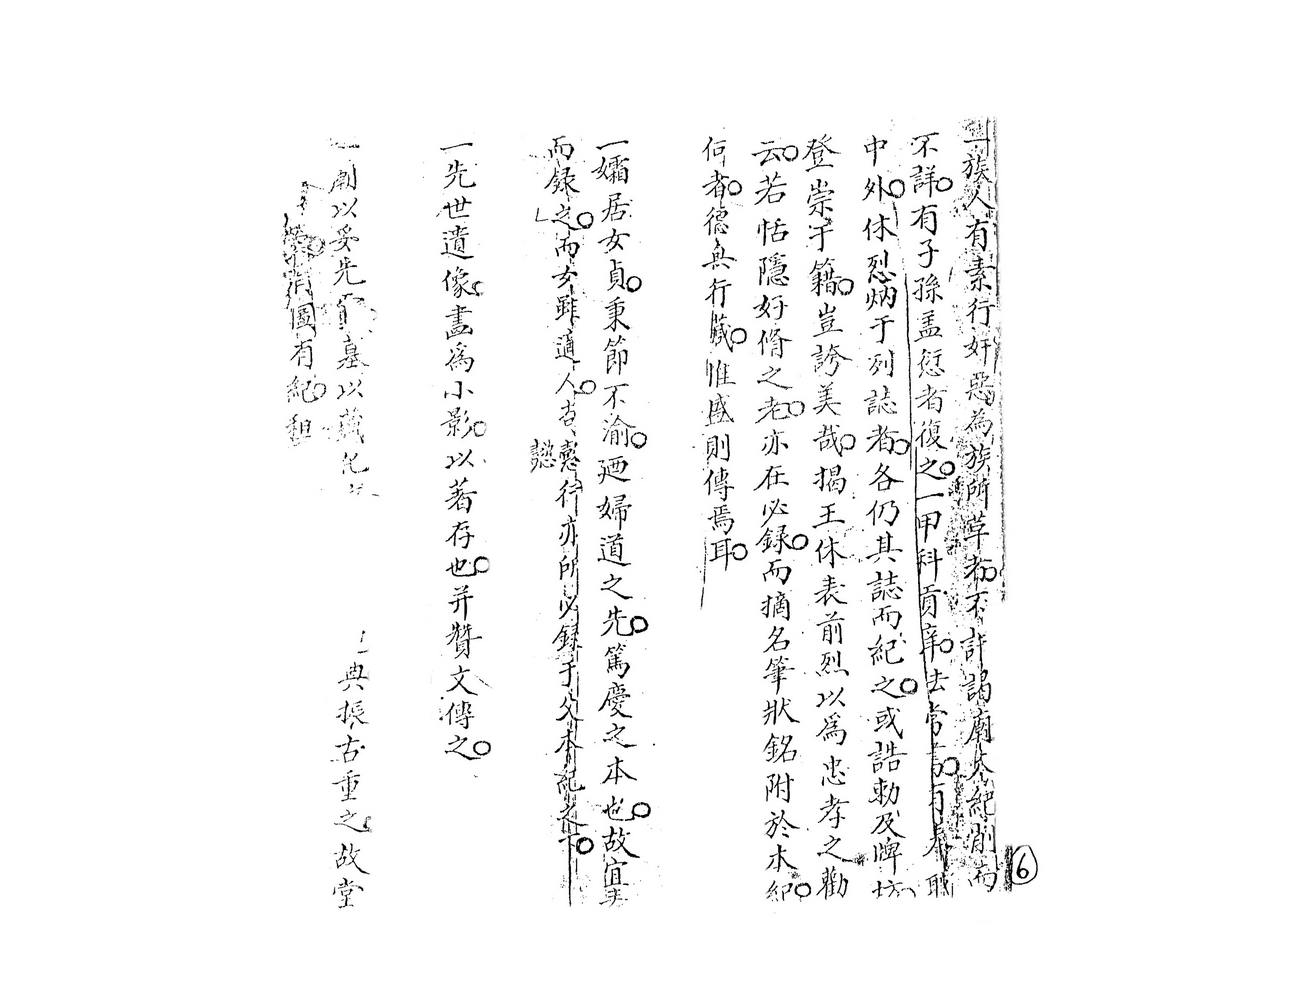 一族人有素行奸惡為族所草者不許謁廟本紀削而
不詳有子孫盖愆者復之一甲科貢辟去常有本職
中外休烈炳于列誌者各仍其誌而紀之或誥勅及牌坊
登崇于籍豈誇美哉揭王休表前烈以為忠孝之勸
云若恬隱好脩之老亦在必錄而摘名筆狀銘附於本紀
何者德與行藏惟盛則傳焉耳
一孀居女貞秉節不渝廼婦道之先篤慶之本也故宜
而録之而女雖適人懿行亦所必錄于父本紀之下
懿
一先世遺像畫為小影以著存也并贊文傳之
廟以妥先墓以藏典振古重之故堂
圖有紀
6